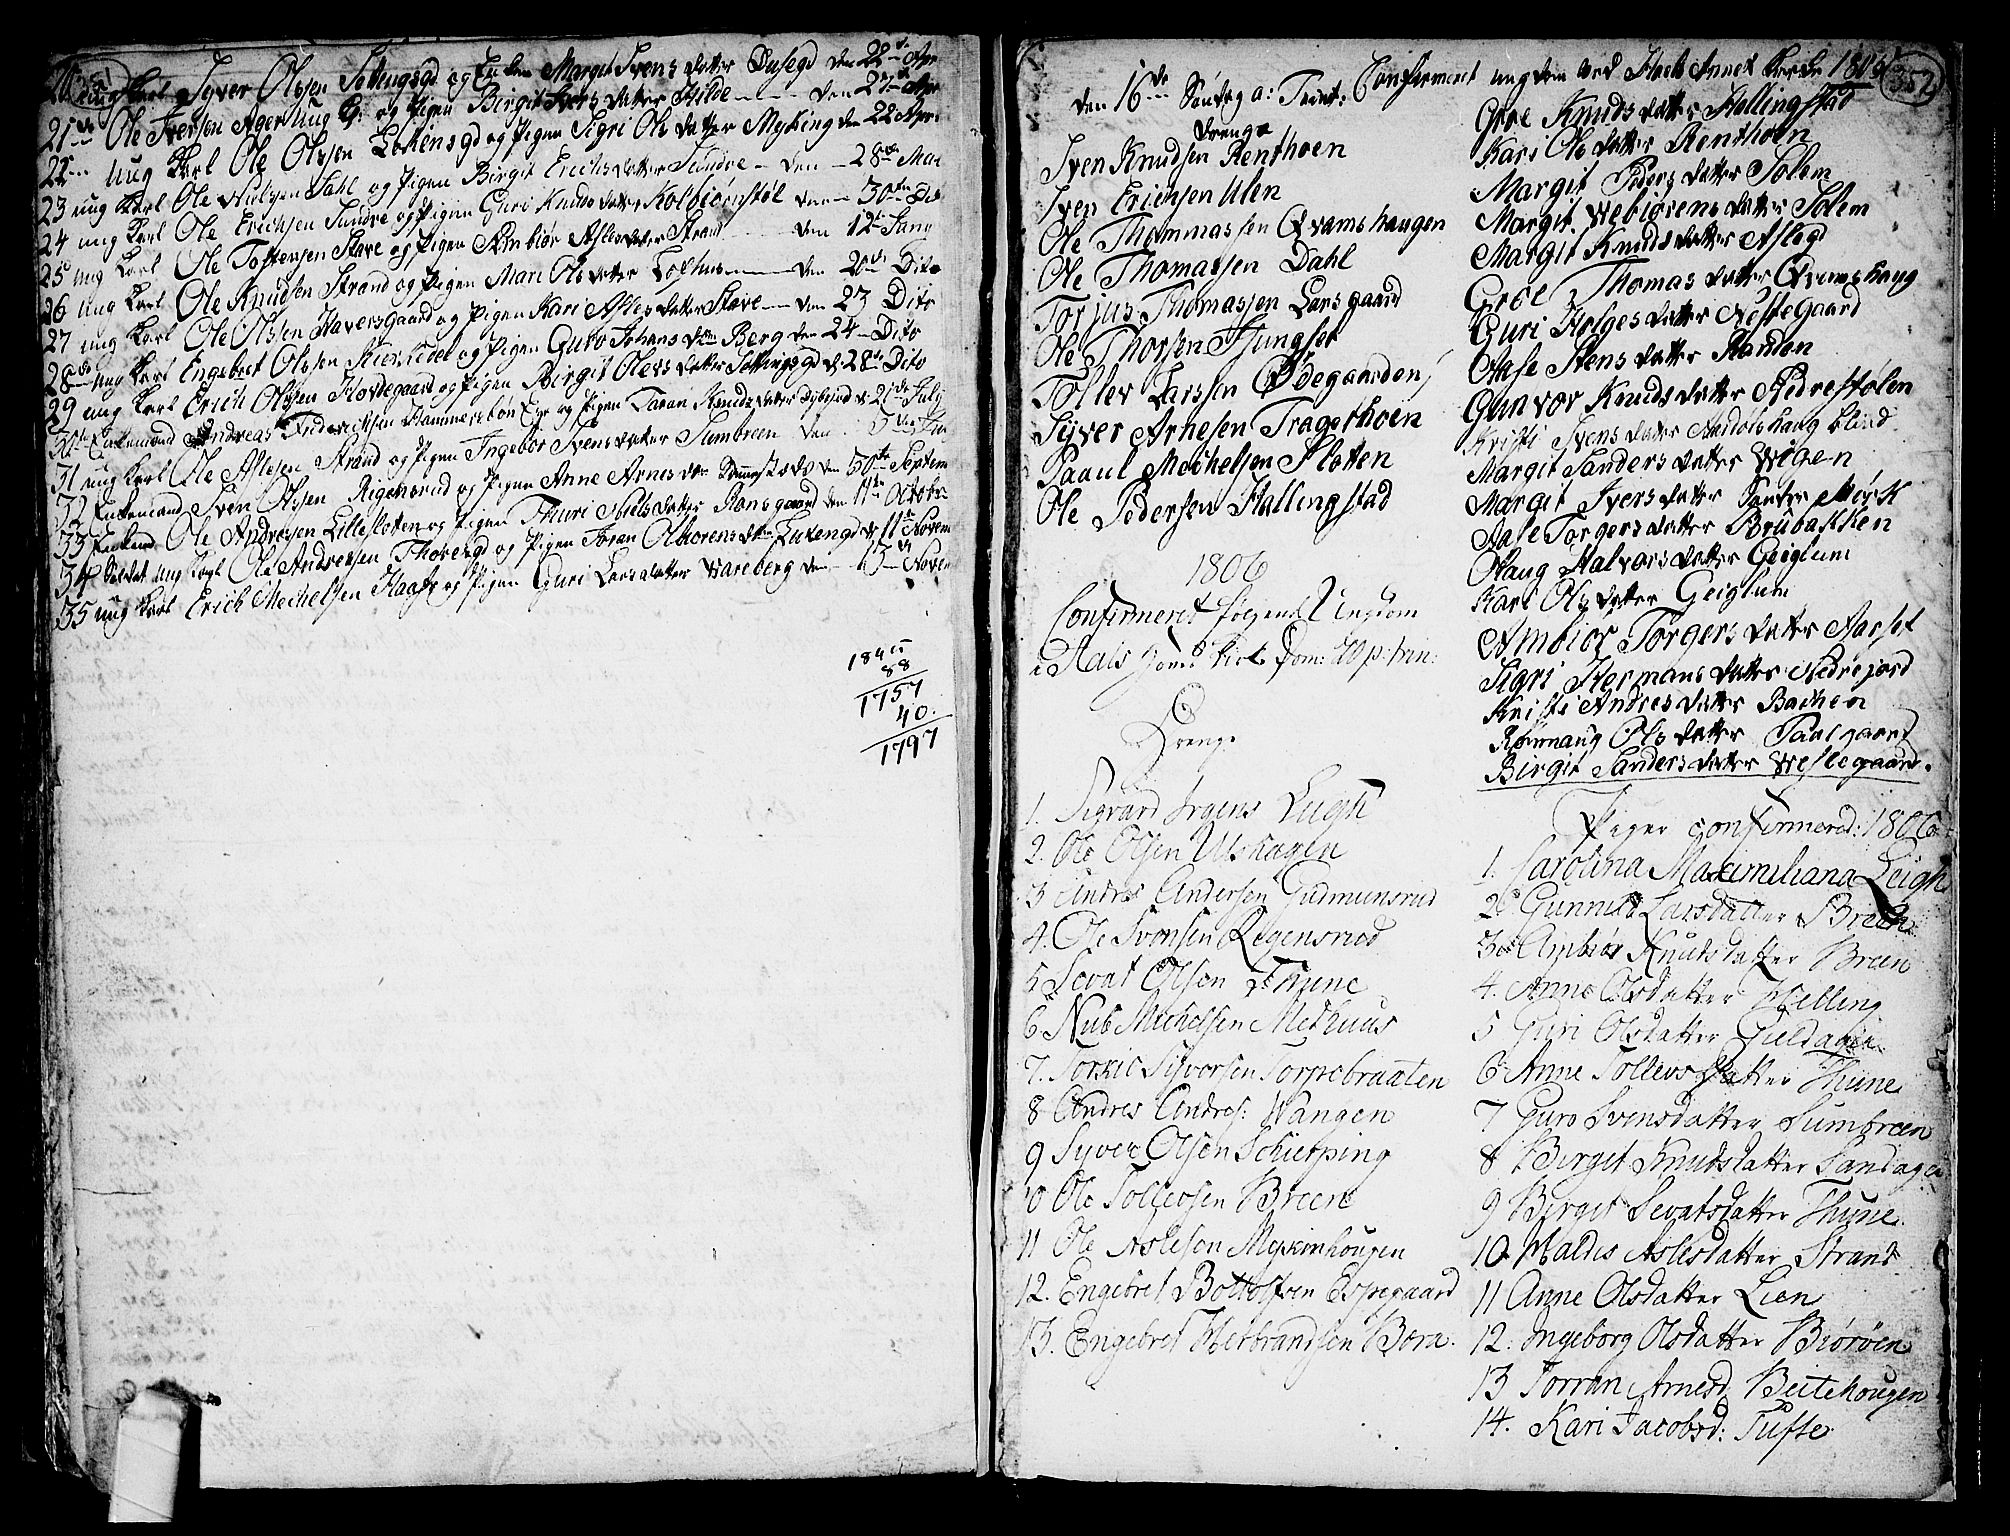 20 ung Karl Syver Olssen Settungsgd og Enken Margit Svens datter Dusegd den 22de Apr
21de Ole Iversen Ager ung K: og Pigen Birgit Ivers datter Hilde den 27de Apr
22 ung Karl Ole Olssen Løkensgd og Pigen Sigri Ols datter Myking den 22 Apr:
23 ung Karl Ole Nielsen Dahl og Pigen Birgit Erichs datter Sundre den 28de Mai
24 ung Karl Ole Erichsen Sundre og Pigen Guri Knuds datter Kolbiørnstøl den 30te Dito
25 ung Karl Ole Tostensen Stave og Pigen Ambiør Asles datter Strand den 12te Juny
26 ung Karl Ole Knudsen Strand og Pigen Mari Ols datter Tolhus den 20de Dito
27 ung Karl Ole Olssen Haversgaard og Pigen Kari Asles datter Stave den 23 Dito
28de ung Karl Engebret Olssen og Pigen Guro Johans dtr Berg den 24 Dito
29 ung Karl Erich Olssen Hovdegaard og Pigen Birgit Olevs datter Settungsgd d: 28de Dito
30te Enkemand Andreas Friderichsen Hammersbøn Eye og Pigen Taran Knuds datter d: 21de July
31 ung Karl Ole Aslesen Strand og Pigen Ingebor Svens datter Sumbreen den
32 Enkemand Sven Olssen Rigensrud og Pigen Anne Arnes dtr den 30te Septem
33 Enkemd Ole Andresen Lillesletten og Pigen Thuri Niels datter Ransgaard den 11te Octobr
34 Soldat ung Karl Ole Andresen Thoresgd og Pigen Joran Olhovens dtr d: 11te Novem
35 ung Karl Erich Michelsen Haafe og Pigen Guri Lars datter Wareberg den 13de Novem
1845
88
1757
40.
1797
352
den 16de Søndag a: Trinit: Confirmeret ungdom ved Hoels Annex Kirke 1805
Drenge
Sven Knudsen Renthoen
Sven Erichsen Ulen
Ole Thommassen Qvamshaugen
Ole Thomassen Dahl
Torjus Thomassen Larsgaard
Ole Thorsen Liungset
Tollev Larssen Ødegaarden
Syver Arnesen Tragethoen
Paaul Mechelsen Slotten
Ole Pedersen Hallingstad
1806
Confirmeret følgende Ungdom
i Aals Hoved Kirke Dom: 20 p: trin:
Drenge
1. Sigvard Irgens Leigh
2. Ole Olsen Ulshagen
3 Andres Andersen Gudmunsrud
4. Ole Svensen Regensrud
5 Sevat Olsen Thune
6 Nub Michelsen Medhuus
7. Torkil Syversen Torpebraaten
8 Andres Andres: Wangen
9 Syver Olsen Schierping
10 Ole Tollevsen Breen
11 Ole Aslesen Myskinhougen
12. Engebret Bottolfsen Espegaard
13. Engebret Herbrandsen Bera.
Groe Knuds datter Hallingstad
Kari Ols datter Renthoen
Margit Peders datter Solem
Margit Webiørens datter Solem
Margit Knuds datter Aslegd
Groe Thomas datter Qvamshaug
Guri Helges datter Nestegaard
Aase Stens datter Randen
Gunvor Knuds datter Nedrestølen
Kristi Svens datter Andolshaug blind.
Margit Sanders datter Wigen
Margit Ivers datter Søndre Mørk
Aase Torgers datter Brubakken
Olaug Halvors datter Geiglum
Kari Ols datter Geiglum
Ambiør Torgers datter Aarset
Sigri Hermans datter Nedrejord
Kristi Andres datter Bachen
Rønnaug Ols datter Paalgaard
Birgit Sanders datter Weslegaard.
Piger confirmered: 1806
1. Carolina Maximiliana Leigh
2 Gunnild Larsdatter Breen
3 Ambiør Knutsdatter Breen
4. Anne Olsdatter Helling
5 Guri Olsdatter Gieldagen
6 Anne Tollevsdatter Thune
7 Guro Svensdatter Sumbreen
8 Birget Knutsdatter Sandagen
9 Birget Sevatsdatter Thune
10 Haldis Aslesdatter Strand
11 Anne Olsdatter Lien
12. Ingeborg Olsdatter Biørøen
13 Torran Arnesd Beitehougen
14. Kari Jacobsd: Tufte